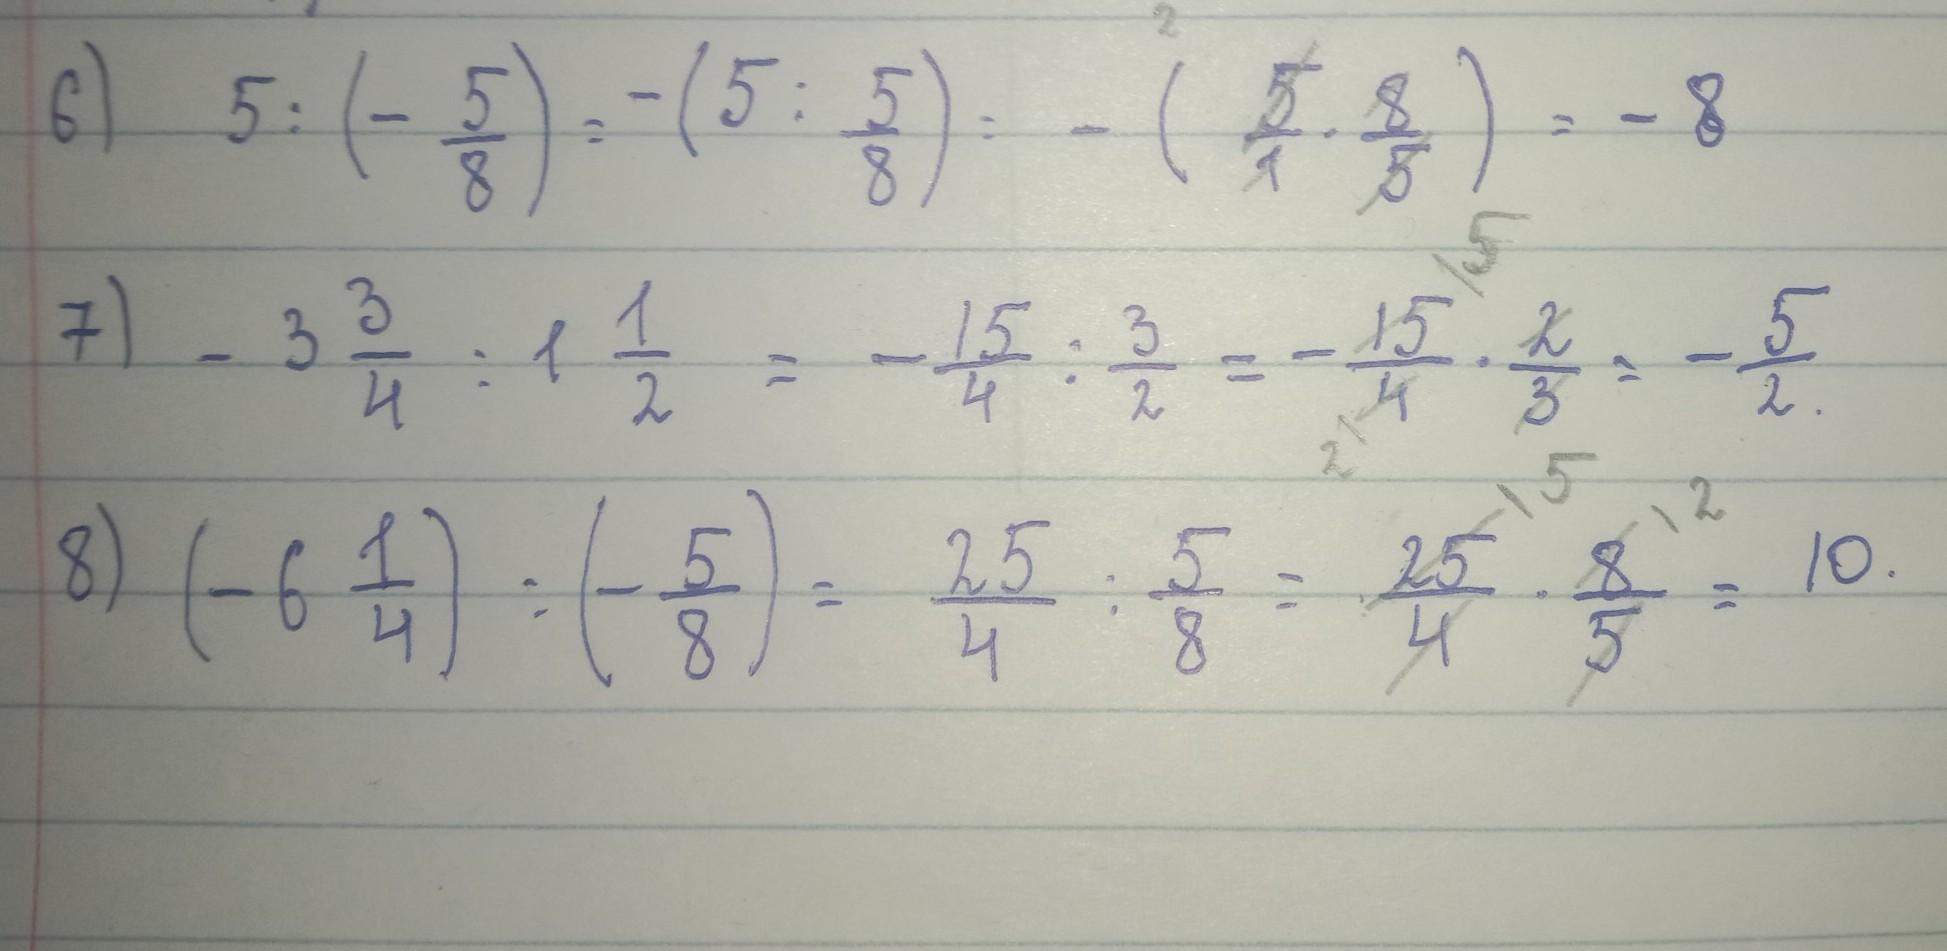 6) 5 : (- 5/8) = -(5 : 5/8) = - (5/1 · 8/5) = - 8
7) - 3 3/4 : 1 1/2 = - 15/4 : 3/2 = - 15/4 \5 2\ · 2/3 = - 5/2.
8) (- 6 1/4) : (- 5/8) = 25/4 : 5/8 = 25/4 \5 · 8/5 \2 = 10.